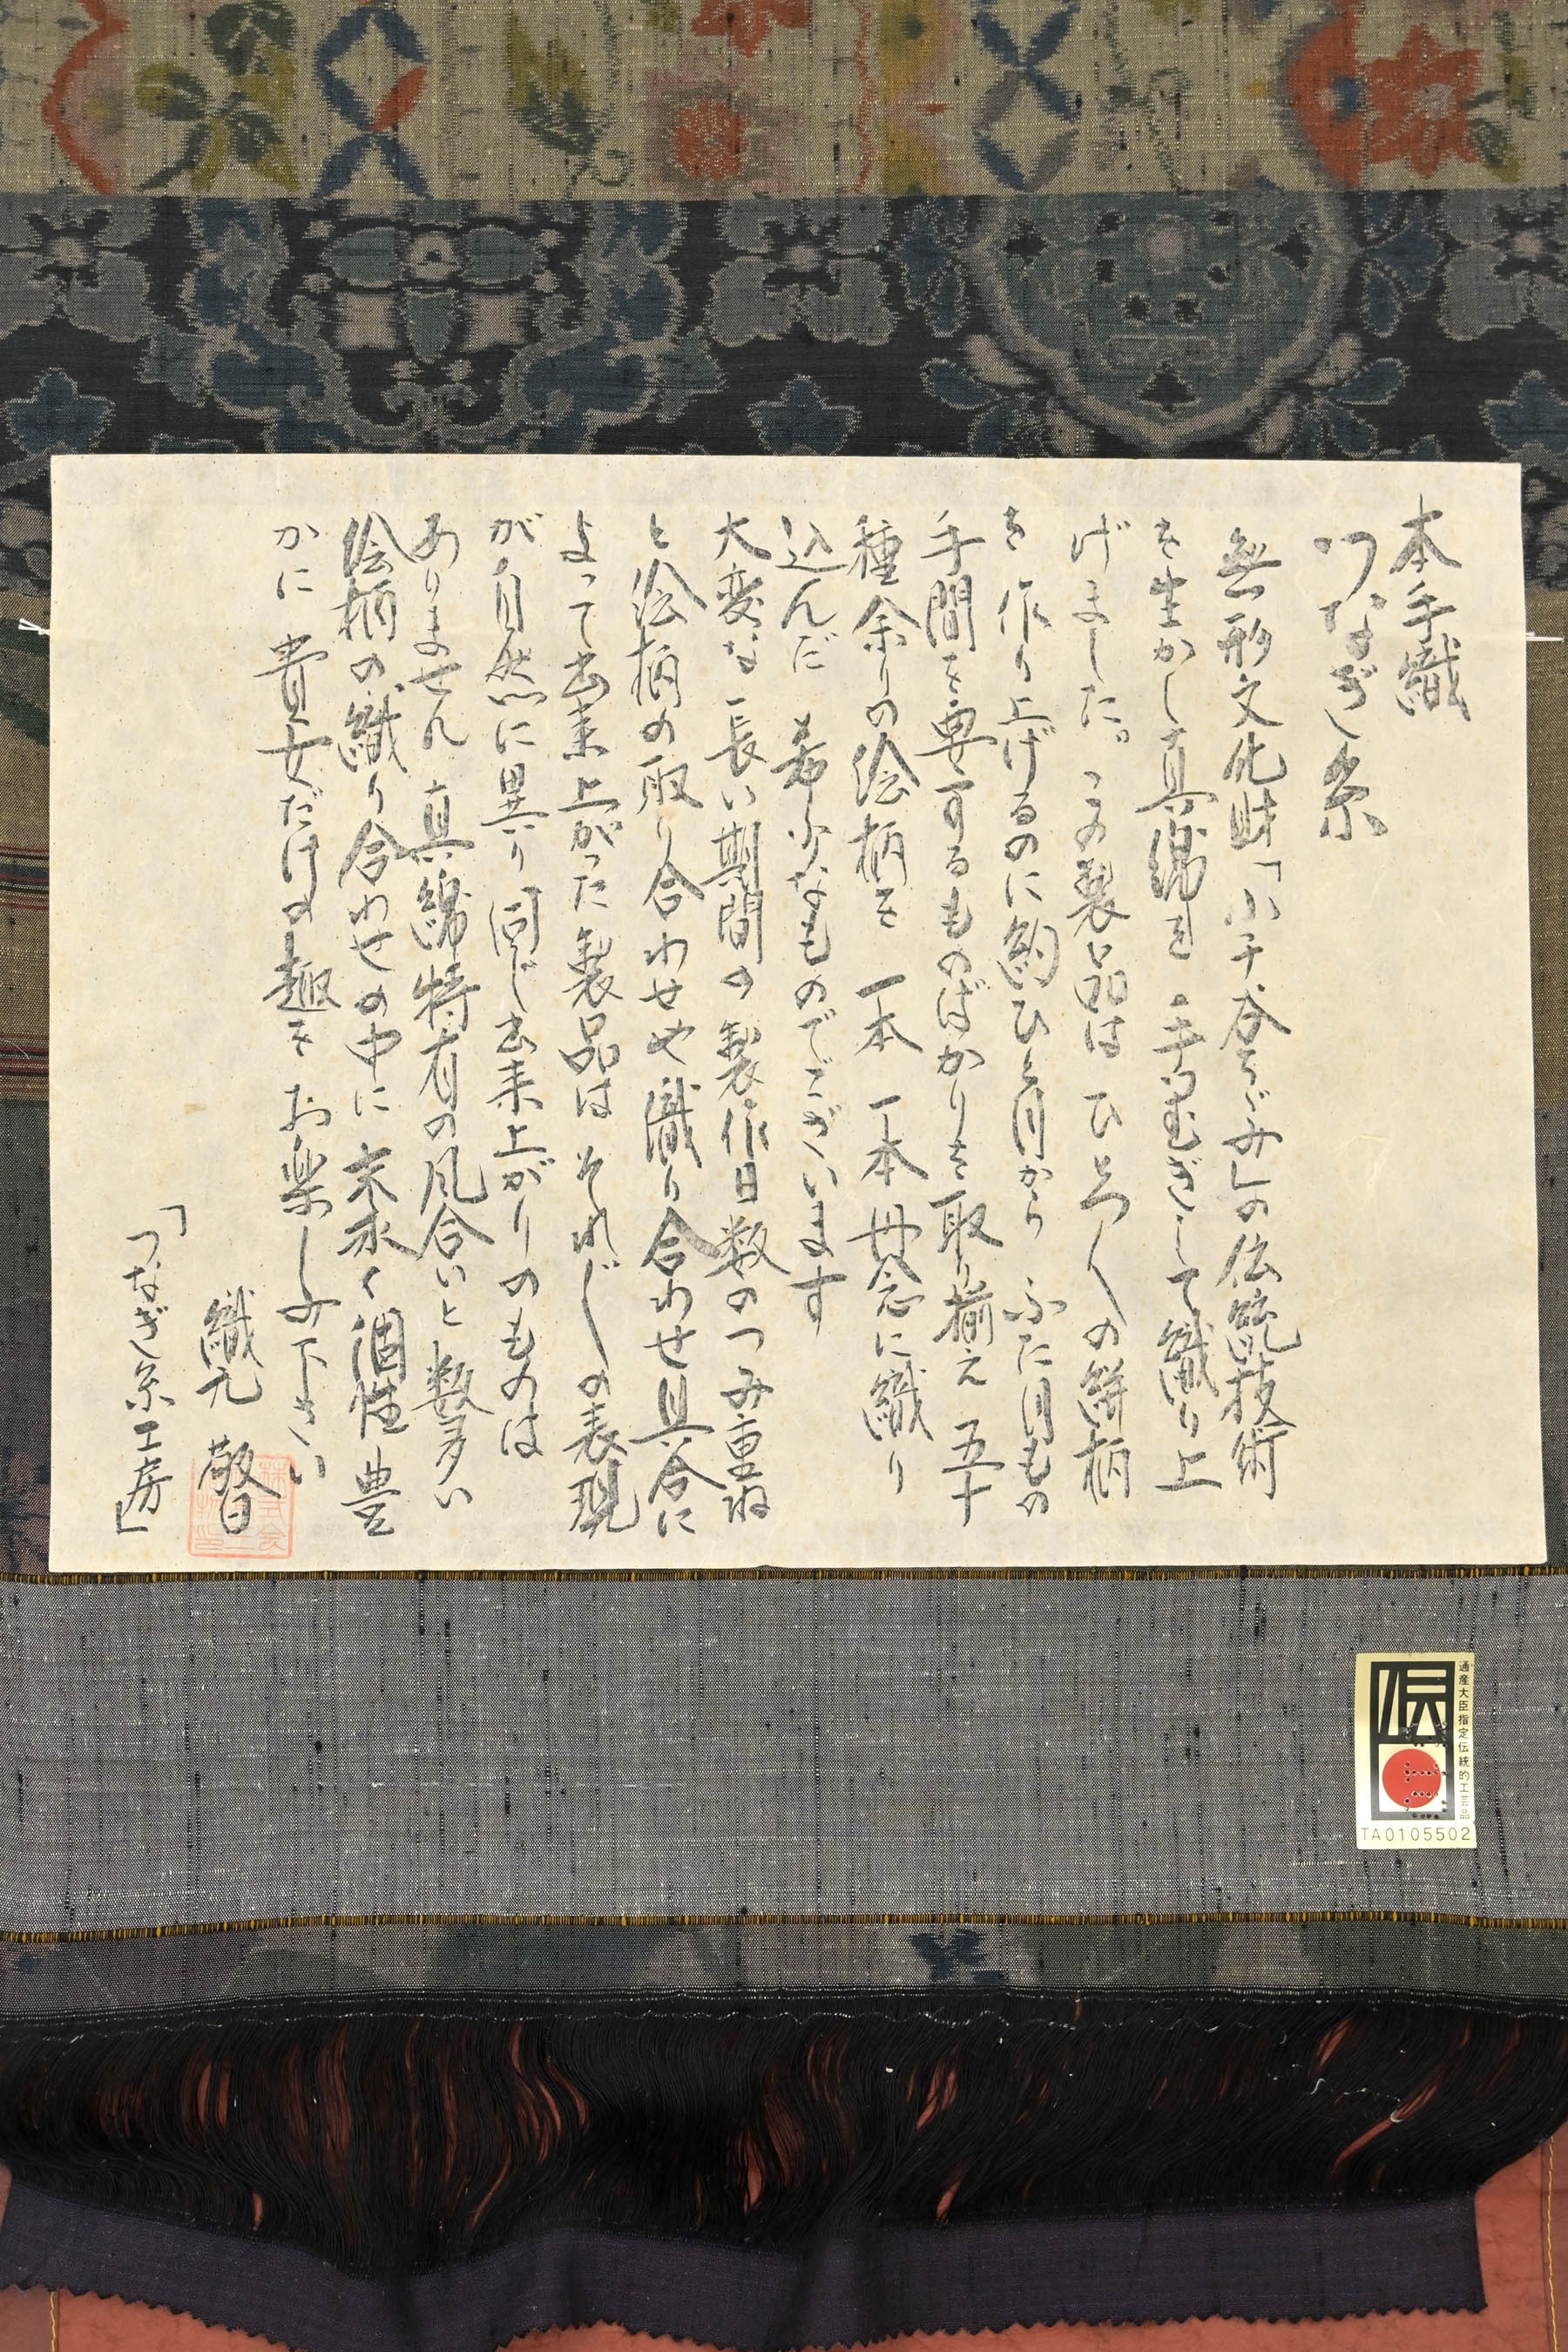 本手織
つなぎ糸
無形文化財「小千谷ちぢみ」の伝統技術
を生かし真綿を手つむぎして織り上
げました。この製品はひとつ〳〵の絣柄
を作り上げるのに約ひと月からふた月もの
手間を要するものばかりを取り揃え五十
種余りの絵柄を一本一本丹念に織り
込んだ希少なものでございます
大変な長い期間の製作日数のつみ重ね
と絵柄の取り合わせや織り合わせ具合に
よって出来上がった製品はそれ〴〵の表現
が自然に異り同じ出来上がりのものは
ありません真綿特有の風合いと数多い
絵柄の織り合わせの中に末永く個性豊
かに貴女だけの趣をお楽しみ下さい
織元 敬白
「つなぎ糸工房」
伝
通産大臣指定伝統的工芸品
TA0105502